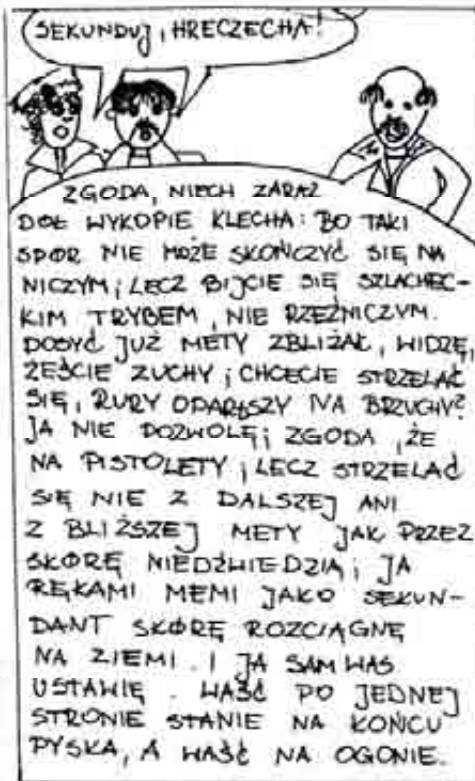 SEKUNDUJ, HRECZECHA!
ZGODA, NIECH ZARAZ
DÓŁ WYKOPIE KLECHA: BO TAKI
SPÓR NIE MOŻE SKOŃCZYĆ SIĘ NA
NICZYM; LECZ BIJCIE SIĘ SZLACHEC-
KIM TRYBEM, NIE RZEŹNICZYM.
DOSYĆ JUŻ METY ZBLIŻAĆ, WIDZĘ,
ŻEŚCIE ZUCHY; CHCECIE STRZELAĆ
SIĘ, RURY ODARŁSZY NA BRZUCHY?
JA NIE POZWOLĘ; ZGODA, ŻE
NA PISTOLETY; LECZ STRZELAĆ
SIĘ NIE Z DALSZEJ ANI
Z BLIŻSZEJ METY JAK PRZEZ
SKÓRĘ NIEDŹWIEDZIĄ; JA
RĘKAMI MEMI JAKO SEKUN-
DANT SKÓRĘ ROZCIĄGNĘ
NA ZIEMI. I JA SAM WAS
USTAWIĘ. WAŚĆ PO JEDNEJ
STRONIE STANIE NA KOŃCU
PYSKA, A WAŚĆ NA OGONIE.